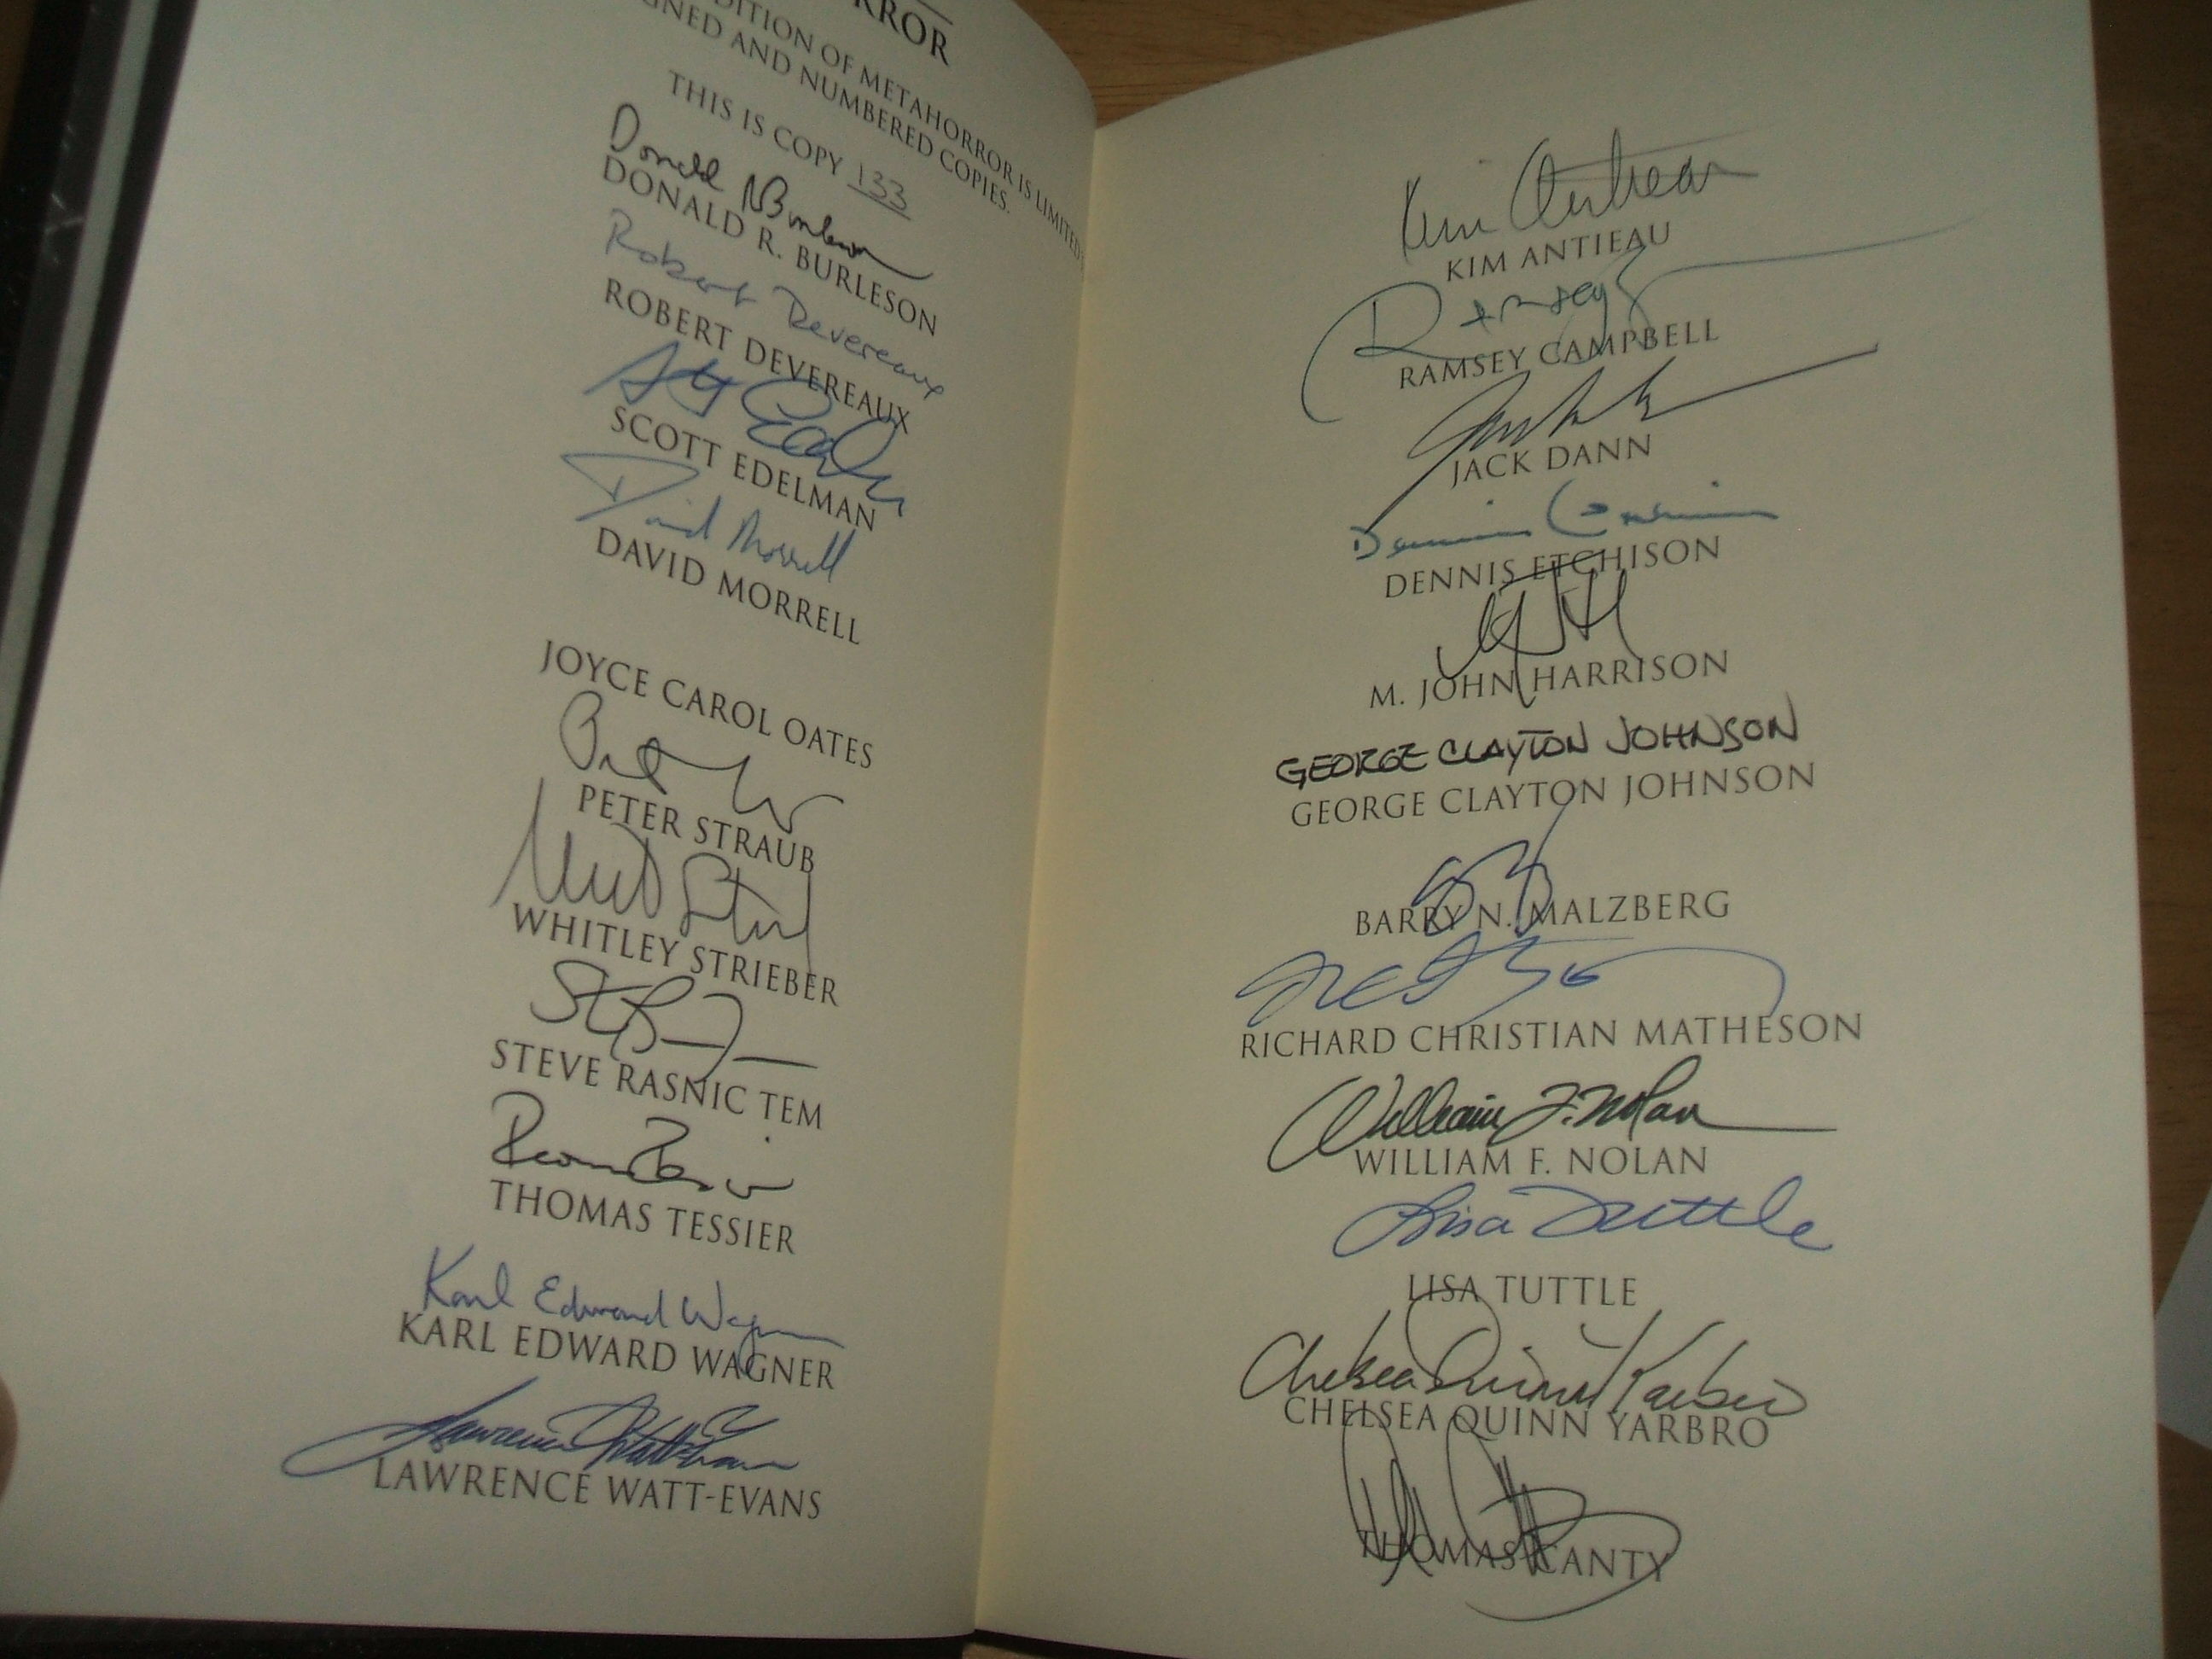 RROR
DITION OF METAHORROR IS LIMITED
GNED AND NUMBERED COPIES.
THIS IS COPY 133
Donald R Burleson
DONALD R. BURLESON
Robert Devereaux
ROBERT DEVEREAUX
SCOTT EDELMAN
David Morrell
DAVID MORRELL
JOYCE CAROL OATES
PETER STRAUB
WHITLEY STRIEBER
STEVE RASNIC TEM
THOMAS TESSIER
Karl Edward Wagner
KARL EDWARD WAGNER
Lawrence Watt-Evans
LAWRENCE WATT-EVANS
Kim Antieau
KIM ANTIEAU
Ramsey
RAMSEY CAMPBELL
JACK DANN
DENNIS ETCHISON
M. JOHN HARRISON
GEORGE CLAYTON JOHNSON
GEORGE CLAYTON JOHNSON
BARRY N. MALZBERG
RICHARD CHRISTIAN MATHESON
William F. Nolan
WILLIAM F. NOLAN
Lisa Tuttle
LISA TUTTLE
Chelsea Quinn Yarbro
CHELSEA QUINN YARBRO
THOMAS CANTY